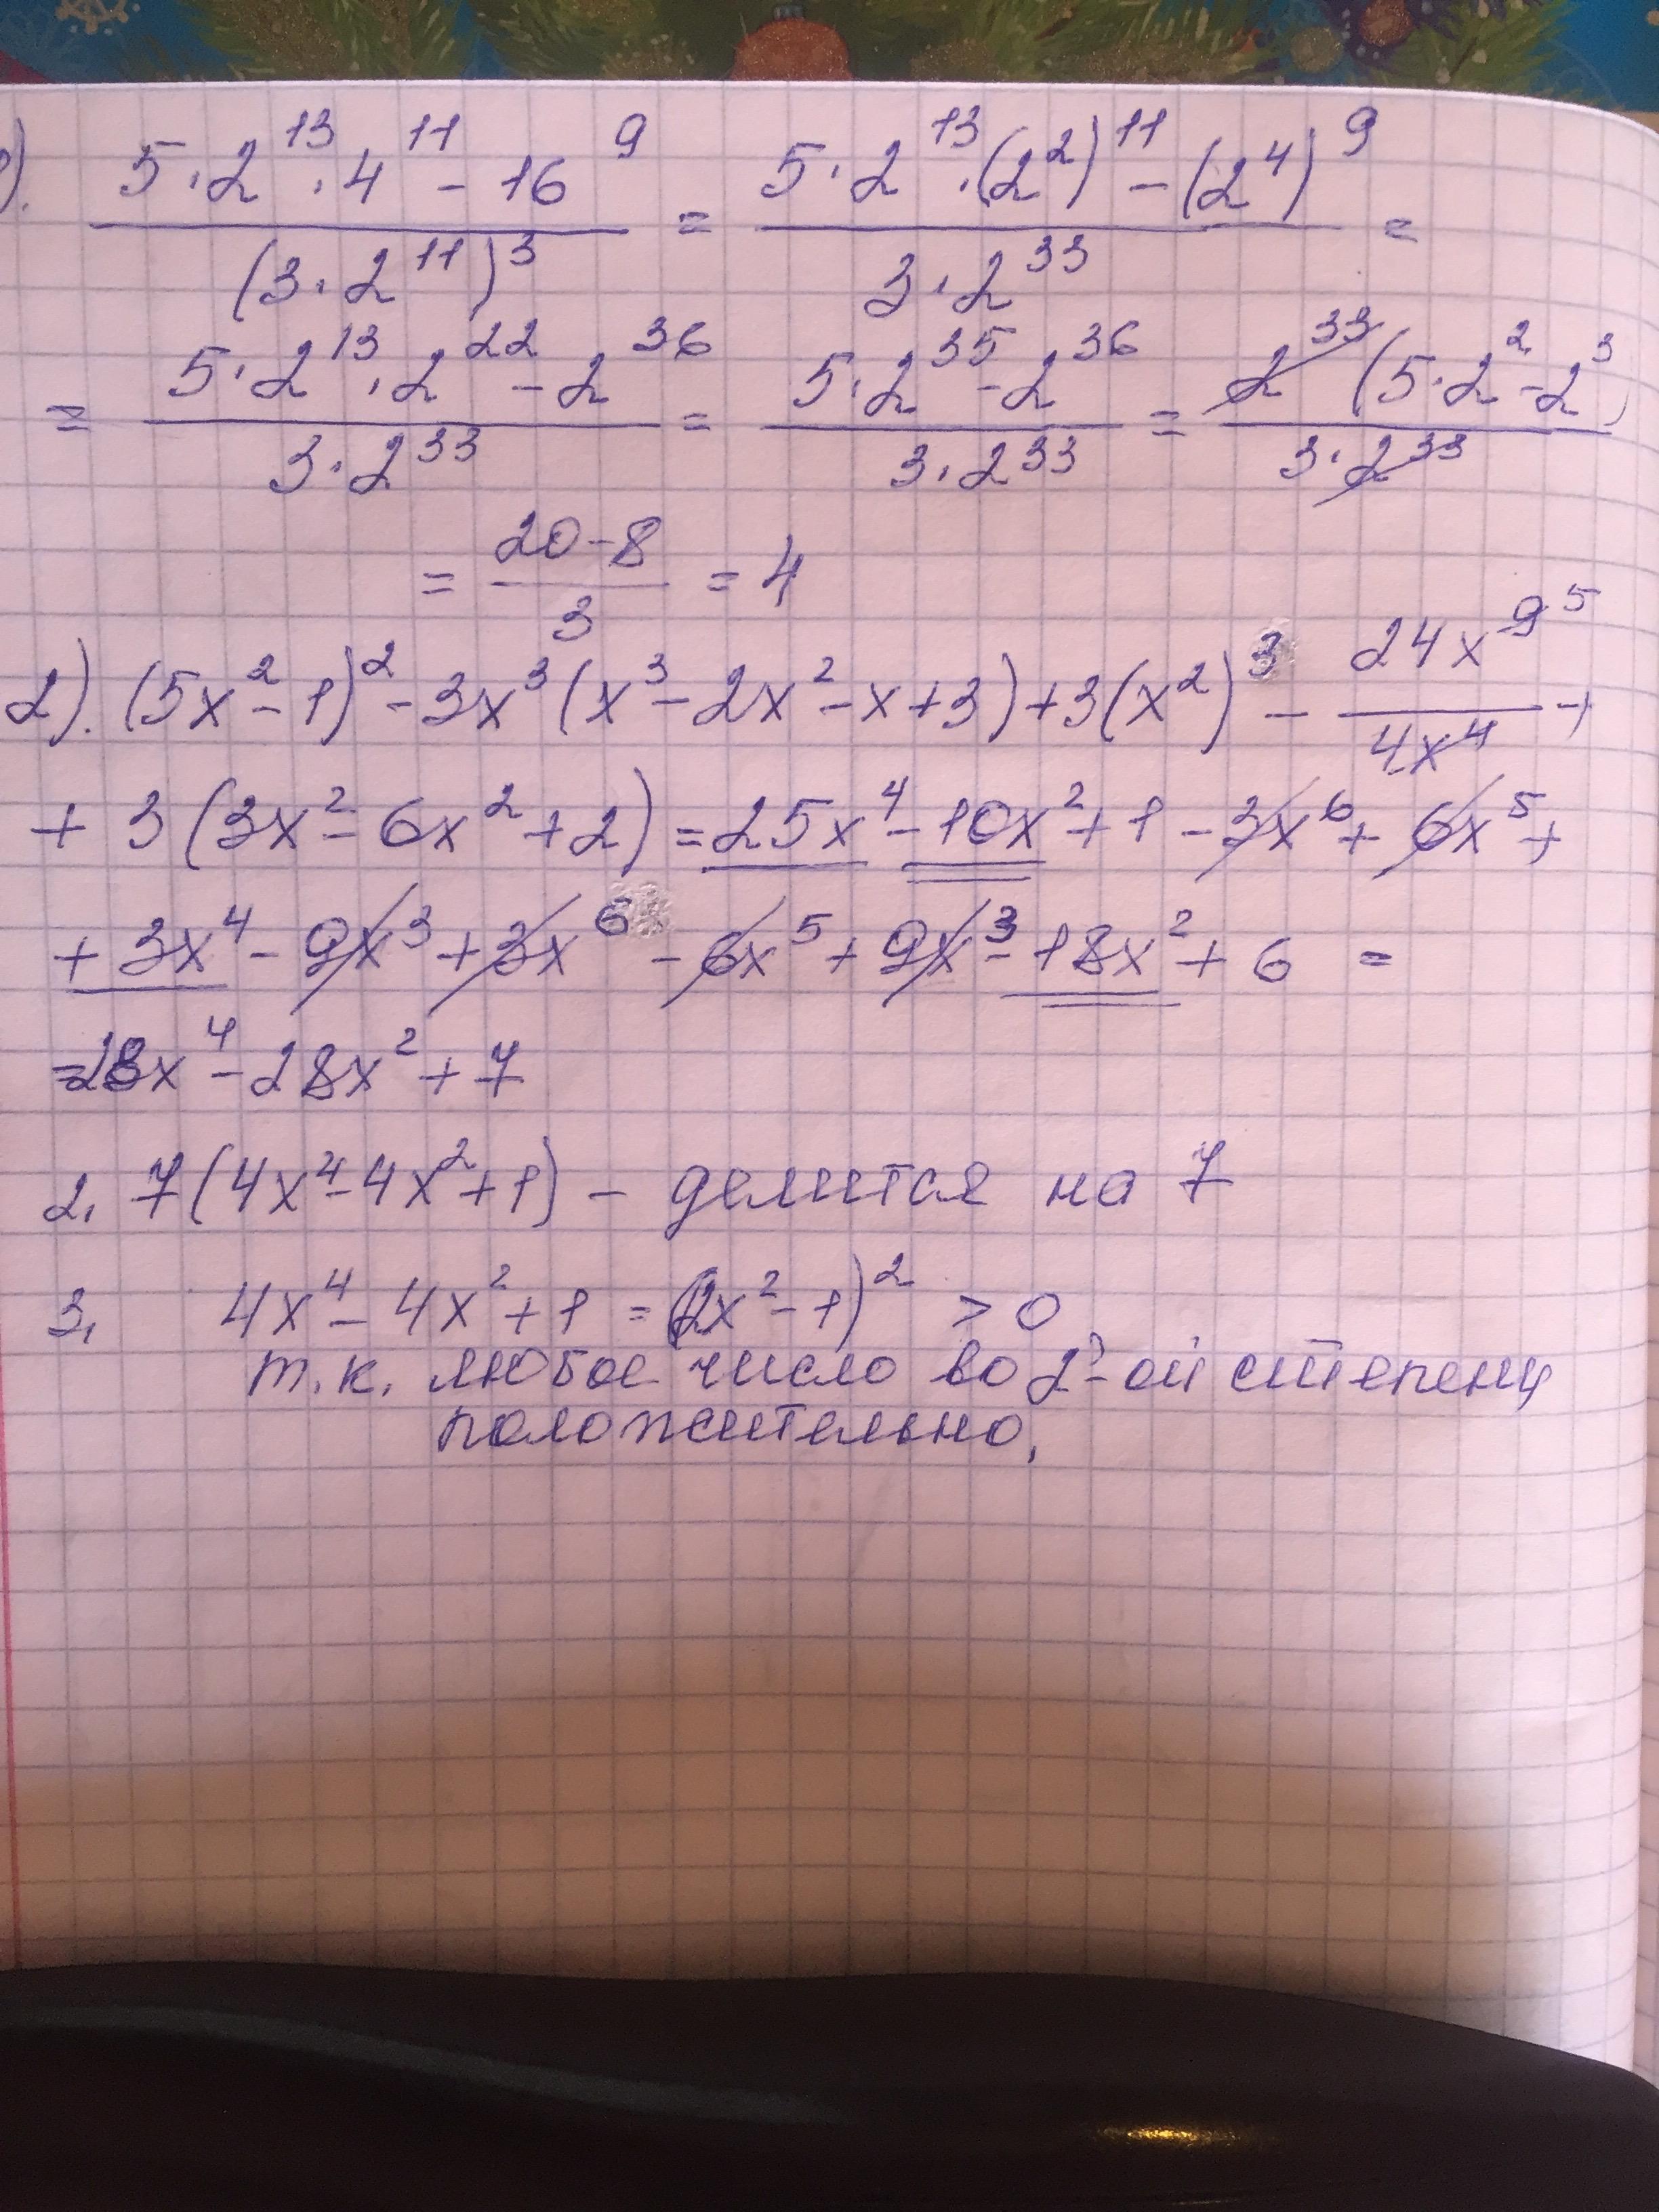 ). (5·2¹³·4¹¹ - 16⁹)/(3·2¹¹)³ = (5·2¹³·(2²)¹¹ - (2⁴)⁹)/(3·2³³) =
= (5·2¹³·2²² - 2³⁶)/(3·2³³) = (5·2³⁵ - 2³⁶)/(3·2³³) = (2³³(5·2² - 2³))/(3·2³³)
= (20-8)/3 = 4
2). (5x² - 1)² - 3x³(x³ - 2x² - x + 3) + 3(x²)³ - 24x⁹ ⁵/4x⁴ +
+ 3(3x² - 6x² + 2) = 25x⁴ - 10x² + 1 - 3x⁶ + 6x⁵ +
+ 3x⁴ - 9x³ + 3x⁶ - 6x⁵ + 9x³ - 18x² + 6 =
= 28x⁴ - 28x² + 7
2. 7(4x⁴ - 4x² + 1) - делится на 7
3. 4x⁴ - 4x² + 1 = (2x² - 1)² > 0
т.к. любое число во 2-ой степени
положительно.